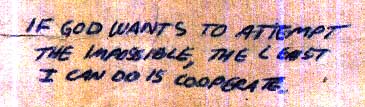 IF GOD WANTS TO ATTEMPT
THE IMPOSSIBLE, THE LEAST
I CAN DO IS COOPERATE